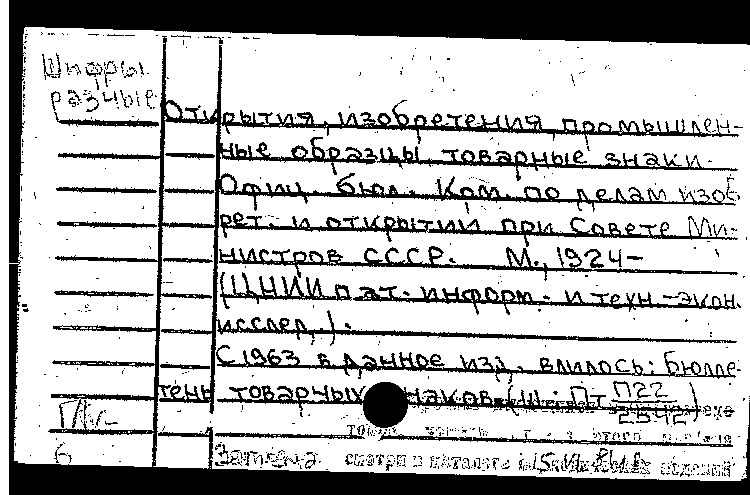 Шифры
разные
Открытия, изобретения, промышлен-
ные образцы, товарные знаки.
Офиц. бюл. Ком. по делам изоб
рет. и открытий при Совете Ми-
нистров СССР. М., 1924-
(ЦНИИ пат. информ. и техн.-экон.
исслед.).
С 1963 в данное изд. влилось: Бюлле-
тень товарных знаков (Ш: Пт П22/2542)
6
Замена смотри в каталоге